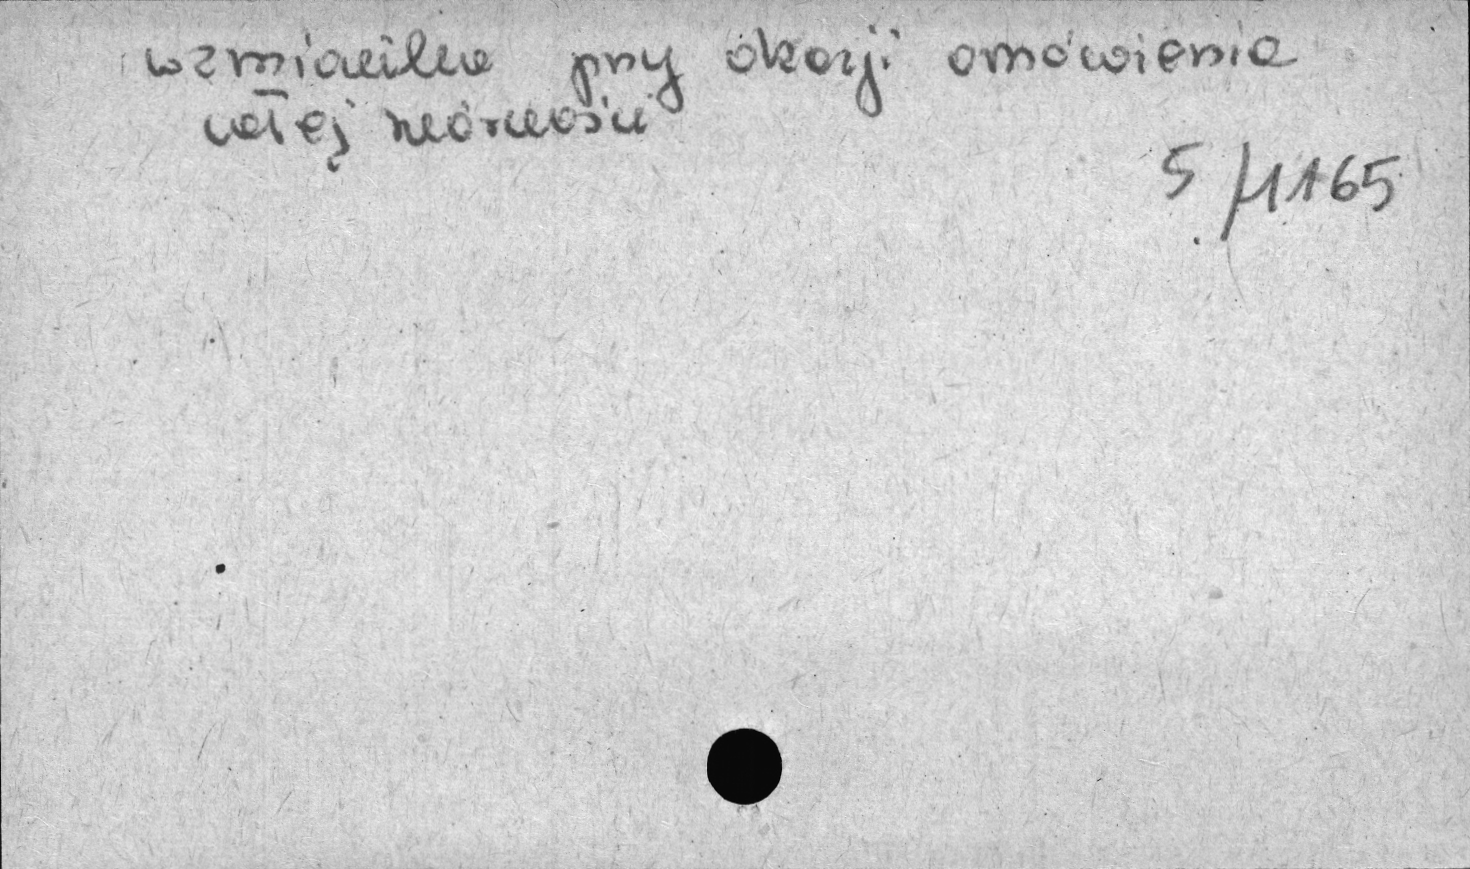 wzmianka przy okazji omówienia
całej twórczości
5 µ1165